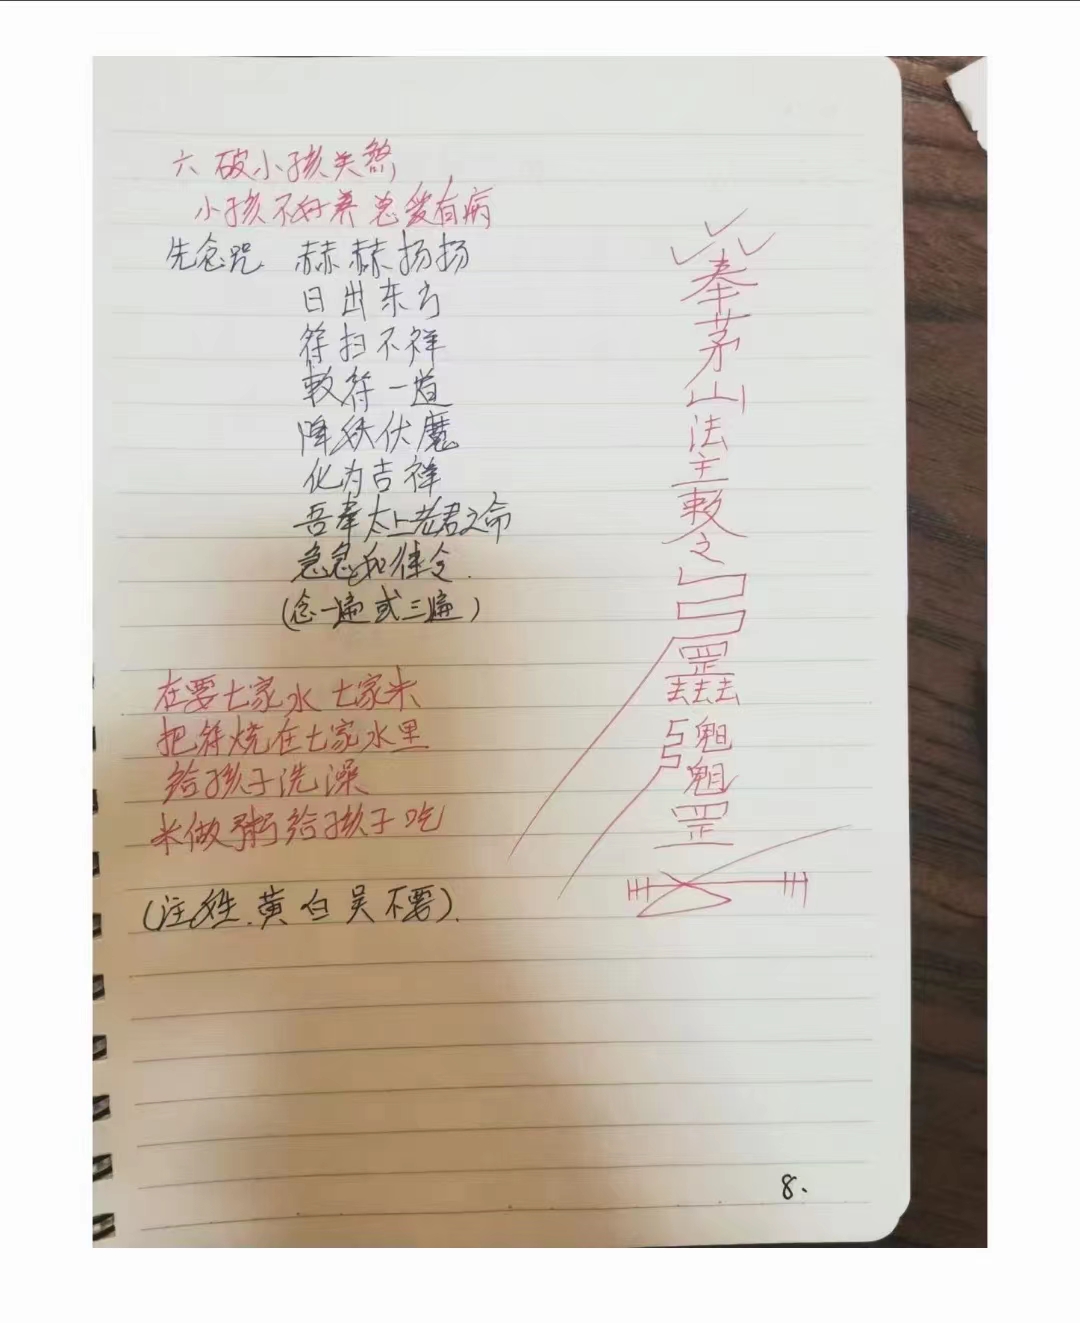 六 破小孩关煞
小孩不好养总爱有病
先念咒 赫赫扬扬
日出东方
符扫不祥
敕符一道
降妖伏魔
化为吉祥
吾奉太上老君之命
急急如律令.
(念一遍或三遍)
在要七家水 七家米
把符烧在七家水里
给孩子洗澡
米做粥给孩子吃
(注姓.黄白吴不要).
奉
茅
山
法
主
敕
令
罡
去去去
罡
8.